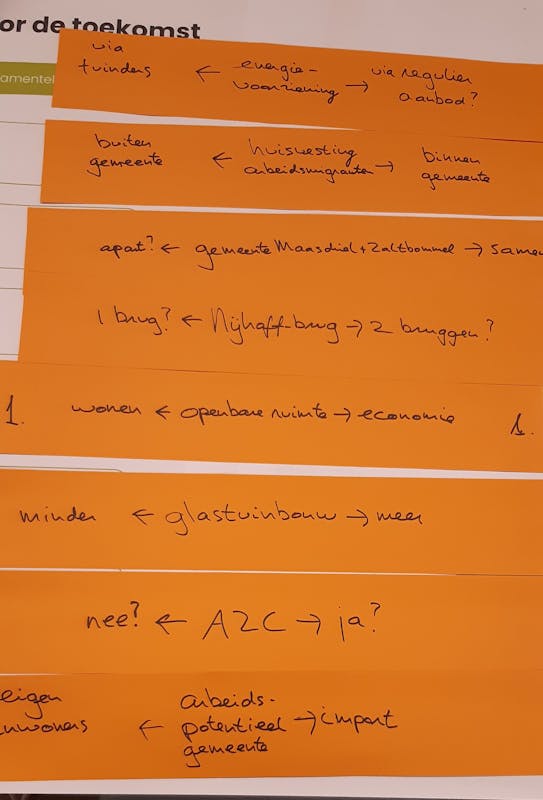 or de toekomst
amentel
via
tuinders ← energie-
voorziening → via regulier
aanbod?
buiten
gemeente ← huisvesting
arbeidsmigranten → binnen
gemeente
apart? ← gemeente Maasdriel + Zaltbommel → samen
1 brug? ← Nijhoff-brug → 2 bruggen?
1. wonen ← openbare ruimte → economie 1.
minder ← glastuinbouw → meer
nee? ← AZC → ja?
eigen
inwoners ← arbeids-
potentieel
gemeente → import